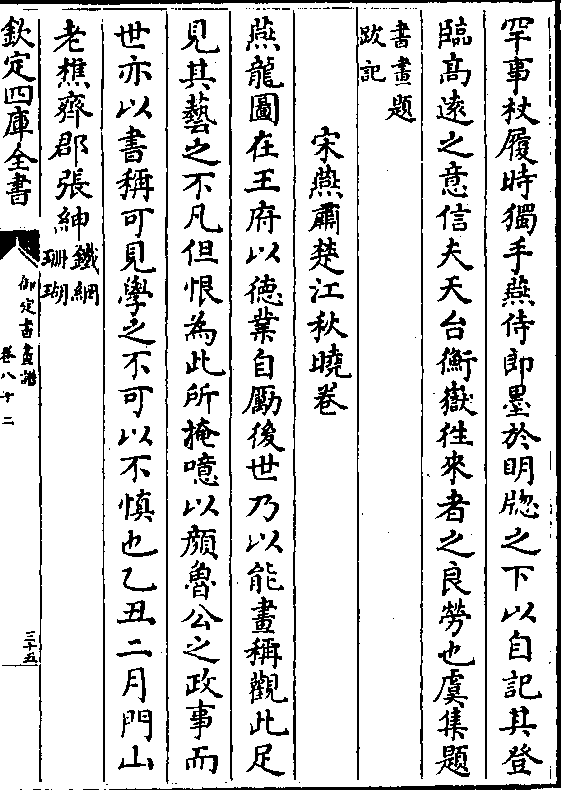 罕事杖履時獨手燕侍郎墨於明牎之下以自記其登
臨高遠之意信夫天台衡嶽往來者之良勞也虞集題
書畫題
跋記
宋燕肅楚江秋曉卷
燕龍圖在王府以德業自勵後世乃以能畫稱觀此足
見其藝之不凡但恨為此所掩噫以顏魯公之政事而
世亦以書稱可見學之不可以不慎也乙丑二月門山
老樵齊郡張紳鐵網
珊瑚
欽定四庫全書
御定書畫譜
卷八十二
三十五